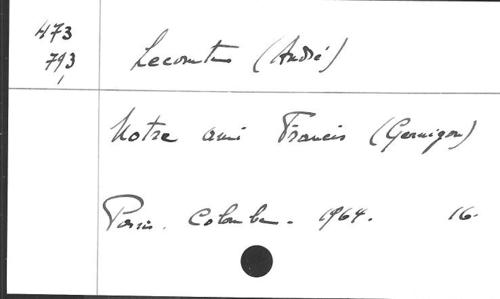 473
793
Lecomte (André)
Notre ami Francis (Gernigon)
Paris. Colombe. 1964. 16.